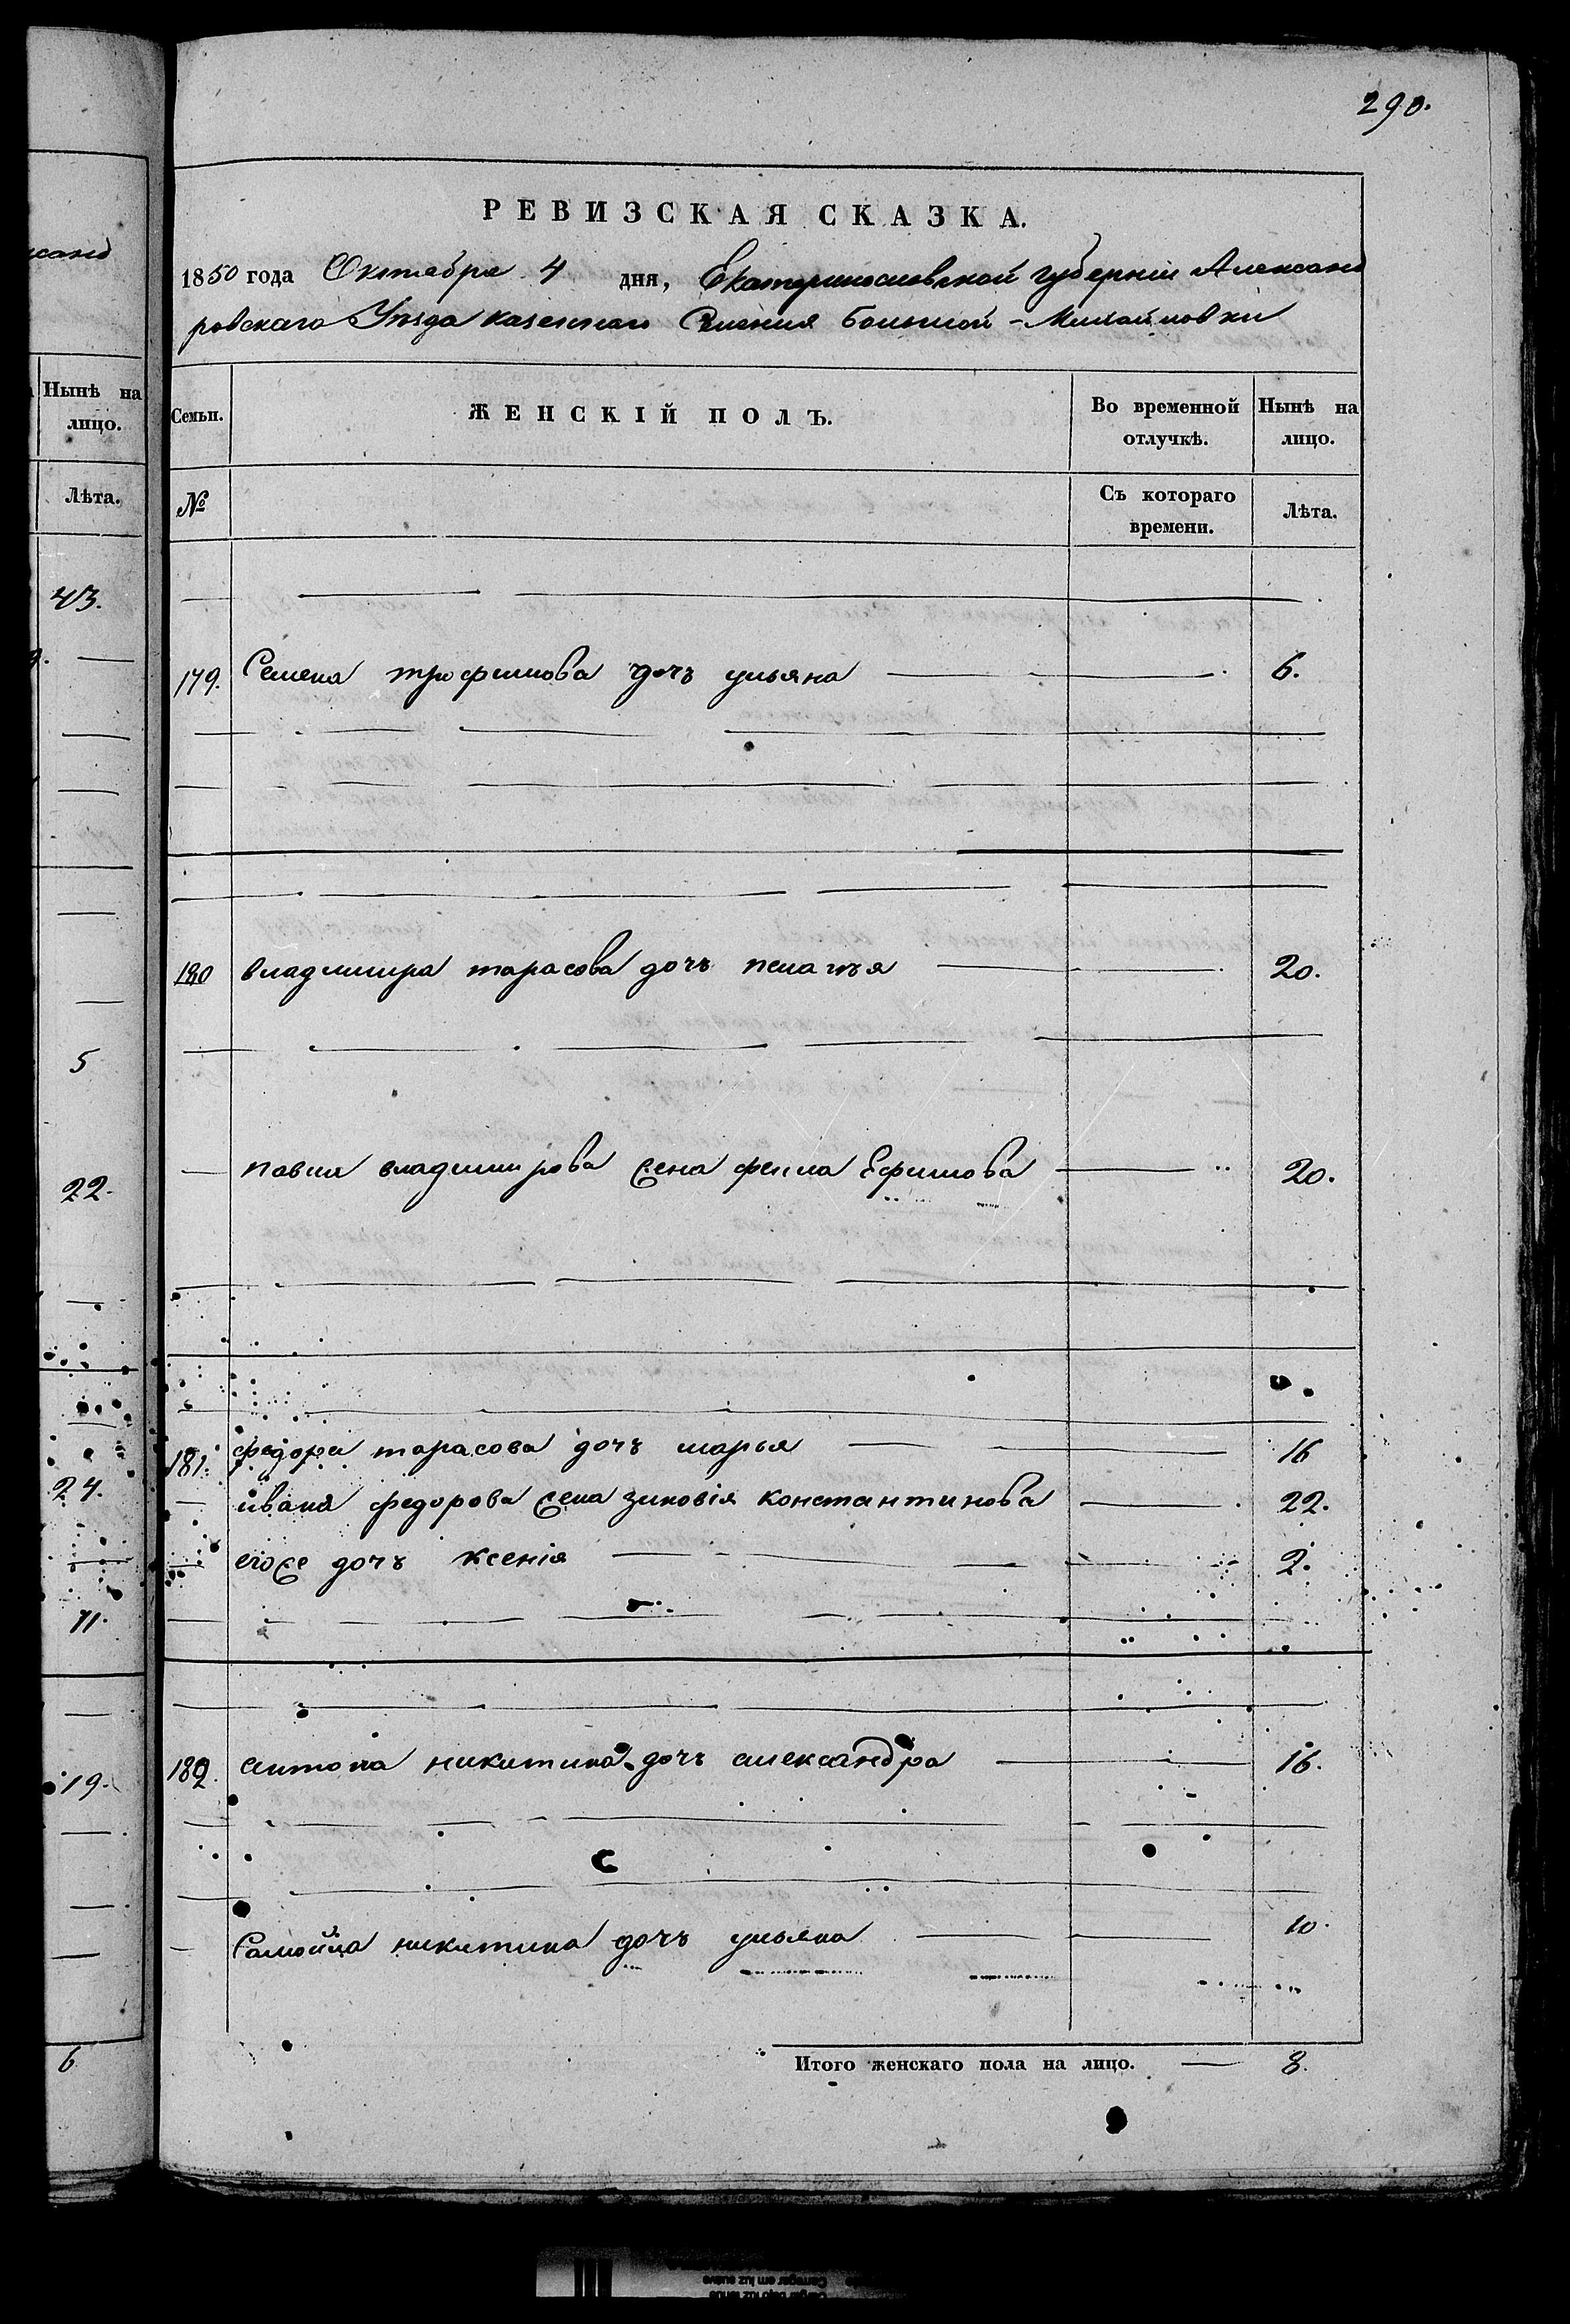 290.
РЕВИЗСКАЯ СКАЗКА.
1850 года Октября 4 дня, Екатеринославской губерніи Александ
ровскаго Уѣзда казеннаго Селенія большой-Михайловки
санд
Нынѣ на
лицо.
Лѣта.
43.
5
22.
24.
11.
19.
6
Семьи. ЖЕНСКІЙ ПОЛЪ. Во временной отлучкѣ. Нынѣ на лицо.
№ Съ котораго времени. Лѣта.
179. Семена трофимова дочь ульяна 6.
180 владимира тарасова дочь пелагъя 20.
павла владимирова жена фекла Ефимова 20.
181. федора тарасова дочь марья 16
ивана федорова жена зиновія константинова 22.
егоже дочь ксенія 2.
182. антона никитина дочь александра 16.
Самойла никитина дочь ульяна 10.
Итого женскаго пола на лицо. 8.